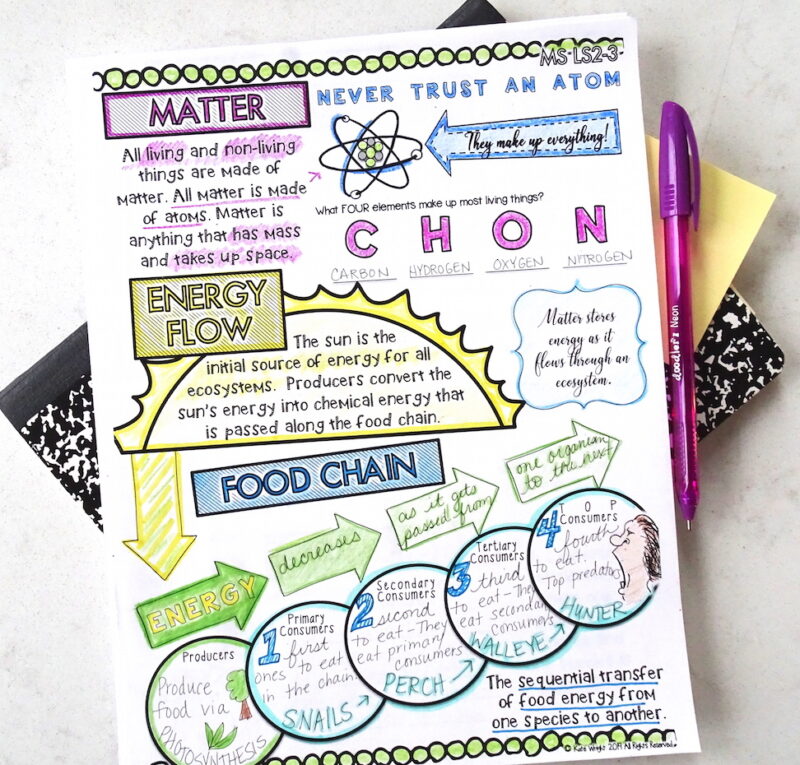 MS-LS2-3
MATTER
NEVER TRUST AN ATOM
They make up everything!
All living and non-living
things are made of
matter. All matter is made
of atoms. Matter is
anything that has mass
and takes up space.
What FOUR elements make up most living things?
C H O N
CARBON HYDROGEN OXYGEN NITROGEN
ENERGY
FLOW
The sun is the
initial source of energy for all
ecosystems. Producers convert the
sun's energy into chemical energy that
is passed along the food chain.
Matter stores
energy as it
flows through an
ecosystem.
FOOD CHAIN
ENERGY
decreases
as it gets
passed from
one organism
to the next
Producers
Produce
food via
PHOTOSYNTHESIS
Primary
Consumers
1 first
ones to eat
in the chain.
SNAILS
Secondary
Consumers
2 second
to eat - They
eat primary
consumers
PERCH
Tertiary
Consumers
3 third
to eat - They
eat secondary
consumers
WALLEYE
TOP
Consumers
4 fourth
to eat.
Top predators
HUNTER
The sequential transfer
of food energy from
one species to another.
© Kate Wright 2019 All Rights Reserved.
doodler'z Neon